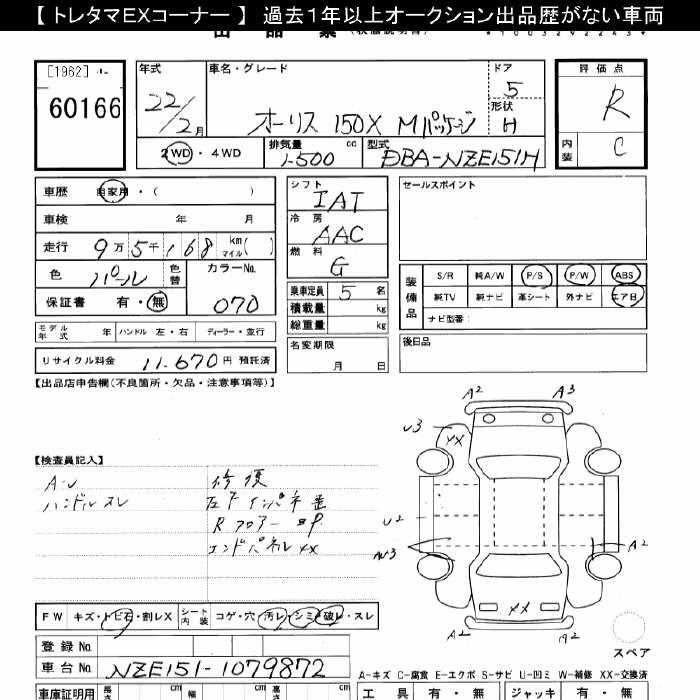 【 トレタマEXコーナー 】 過去1年以上オークション出品歴がない車両
[1962]
60166
年式
22/2月
車名・グレード
オーリス 150X Mパッケージ
ドア
5
形状
H
評価点
R
内装
C
2WD・4WD
排気量
1500 cc
型式
DBA-NZE151H
車歴 自家用・( )
車検 年 月
走行 9万5千168 km マイル( )
色 パール
色替
カラーNo.
070
保証書 有・無
モデル年式 年 ハンドル 左・右 ディーラー・並行
リサイクル料金 11,670円 預託済
シフト
IAT
冷房
AAC
燃料
G
乗車定員 5 名
積載量 kg
総重量 kg
名変期限
月 日
セールスポイント
装備品
S/R 純A/W P/S P/W ABS
純TV 純ナビ 革シート 外ナビ エアB
ナビ型番:
後日品
【出品店申告欄(不良箇所・欠品・注意事項等)】
【検査員記入】
A・U
ハンドルスレ
修復
左下インパネ歪
Rフロアー
エンドパネルXX
A2
A3
U3
XX
U2
A2
XX
A2
A2
スペア
FW キズ・トビ石・割レX シート内装 コゲ・穴・汚レ・シミ・破レ・スレ
登録No.
車台No. NZE151-1079872
A-キズ C-腐食 E-エクボ S-サビ U-凹ミ W-補修 XX-交換済
車庫証明用 長さ cm 幅 cm 高さ cm
工具 有・無 ジャッキ 有・無